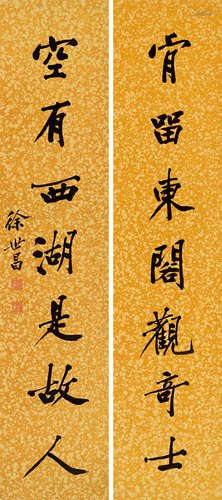 肯留東閣觀奇士
空有西湖是故人
徐世昌